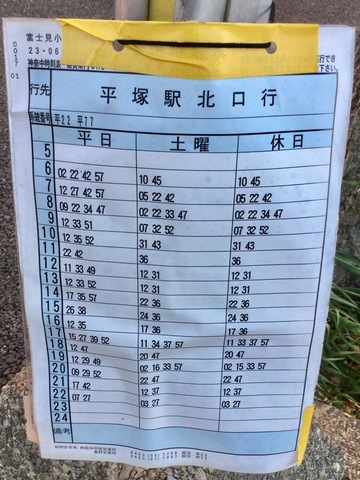 富士見小
23-06
0037
01
神奈中時刻表
行先 平塚駅北口行
系統番号 平22 平77
平日 土曜 休日
5
6 02 22 42 57 10 45 10 45
7 12 27 42 57 05 22 42 05 22 42
8 09 22 34 47 02 22 33 47 02 22 34 47
9 12 33 51 07 32 52 07 32 52
10 12 35 52 31 43 31 43
11 22 42 36 36
12 11 33 49 12 31 12 31
13 12 33 52 12 31 12 31
14 17 35 57 22 36 22 36
15 26 38 24 36 22 36
16 12 35 17 36 17 36
17 15 27 39 52 11 34 37 56 11 33 37 57
18 12 47 20 47 20 47
19 12 29 49 02 16 33 57 02 15 33 57
20 09 29 52 22 47 22 47
21 17 42 12 37 12 37
22 07 27 03 27 03 27
23
24
備考